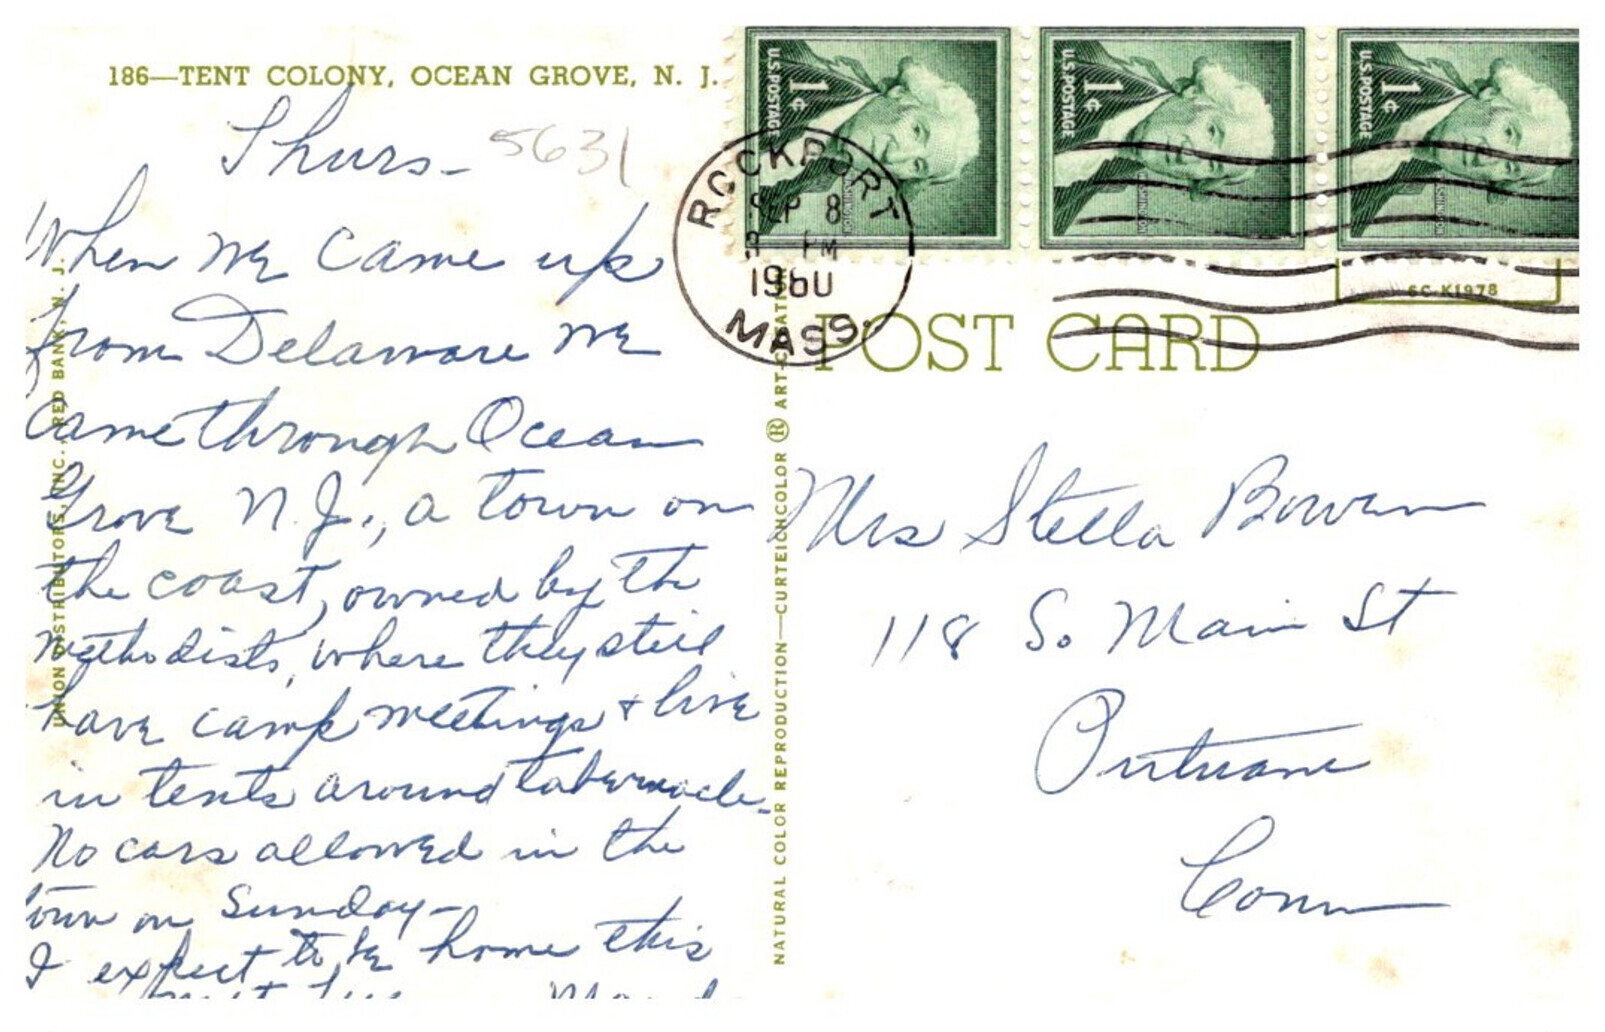 186—TENT COLONY, OCEAN GROVE, N. J.
Thurs-
5631
When we came up
from Delaware we
came through Ocean
Grove N.J., a town on
the coast, owned by the
Methodists, where they still
have camp meetings + live
in tents around tabernacle-
No cars allowed in the
town on Sunday-
I expect to be home this
UNION DISTRIBUTORS, INC., RED BANK, N. J.
NATURAL COLOR REPRODUCTION—CURTEICHCOLOR ® ART-CREATION
U.S. POSTAGE
1¢
WASHINGTON
U.S. POSTAGE
1¢
WASHINGTON
U.S. POSTAGE
1¢
WASHINGTON
ROCKPORT
SEP 8
PM
1960
MASS.
6C-K1978
POST CARD
Mrs Stella Bowen
118 So Main St
Putnam
Conn